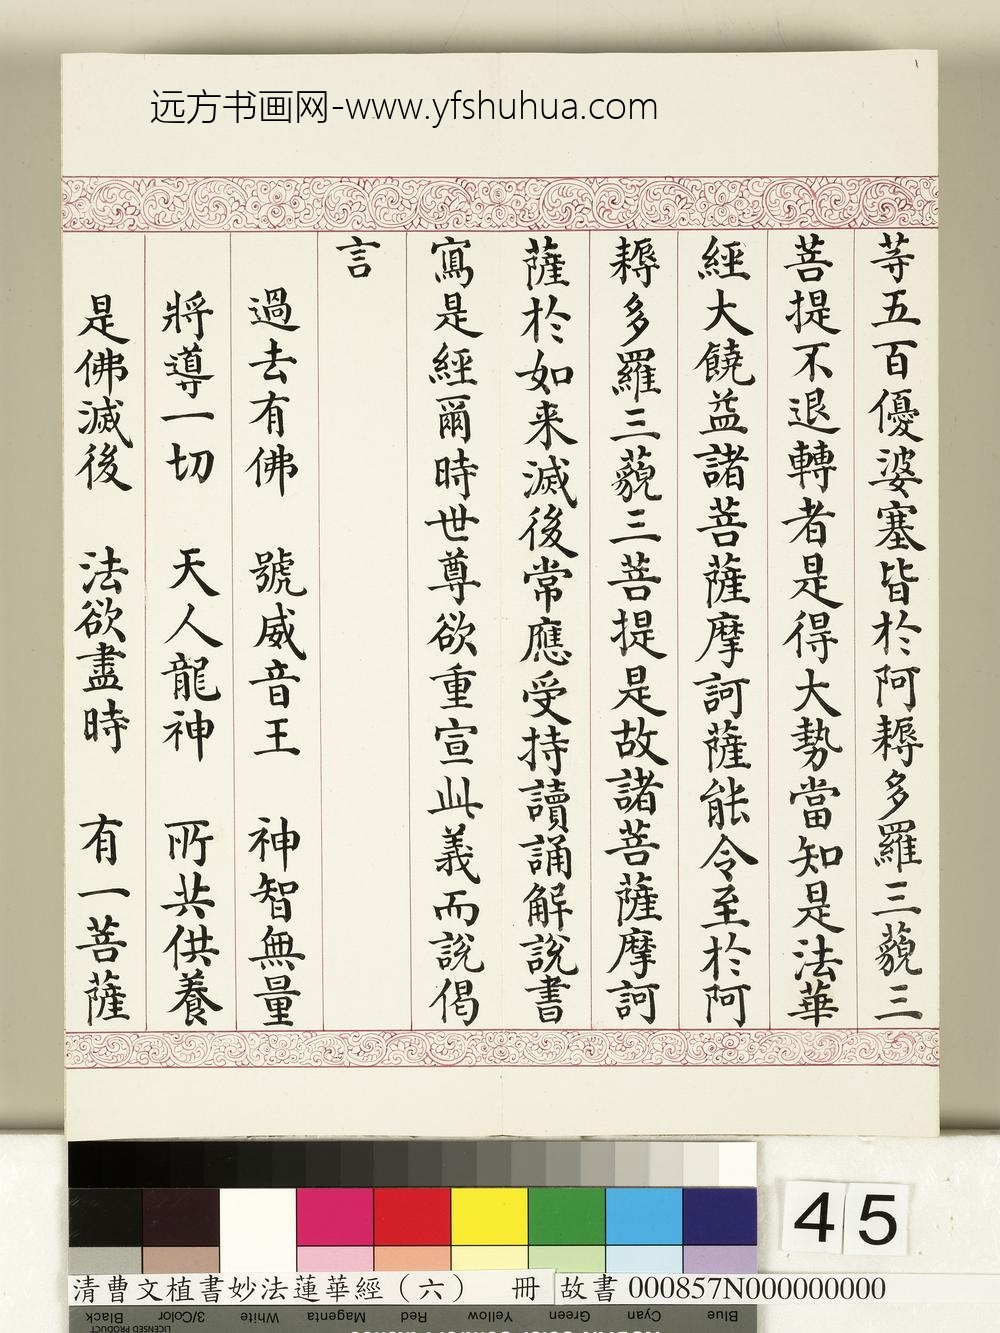 远方书画网-www.yfshuhua.com
等五百優婆塞皆於阿耨多羅三藐三
菩提不退轉者是得大勢當知是法華
經大饒益諸菩薩摩訶薩能令至於阿
耨多羅三藐三菩提是故諸菩薩摩訶
薩於如来滅後常應受持讀誦解說書
寫是經爾時世尊欲重宣此義而說偈
言
過去有佛 號威音王 神智無量
將導一切 天人龍神 所共供養
是佛滅後 法欲盡時 有一菩薩
45
清曹文植書妙法蓮華經（六） 冊 故書 000857N000000000
Black 3/Color White Magenta Red Yellow Green Cyan Blue
LICENSED PRODUCT